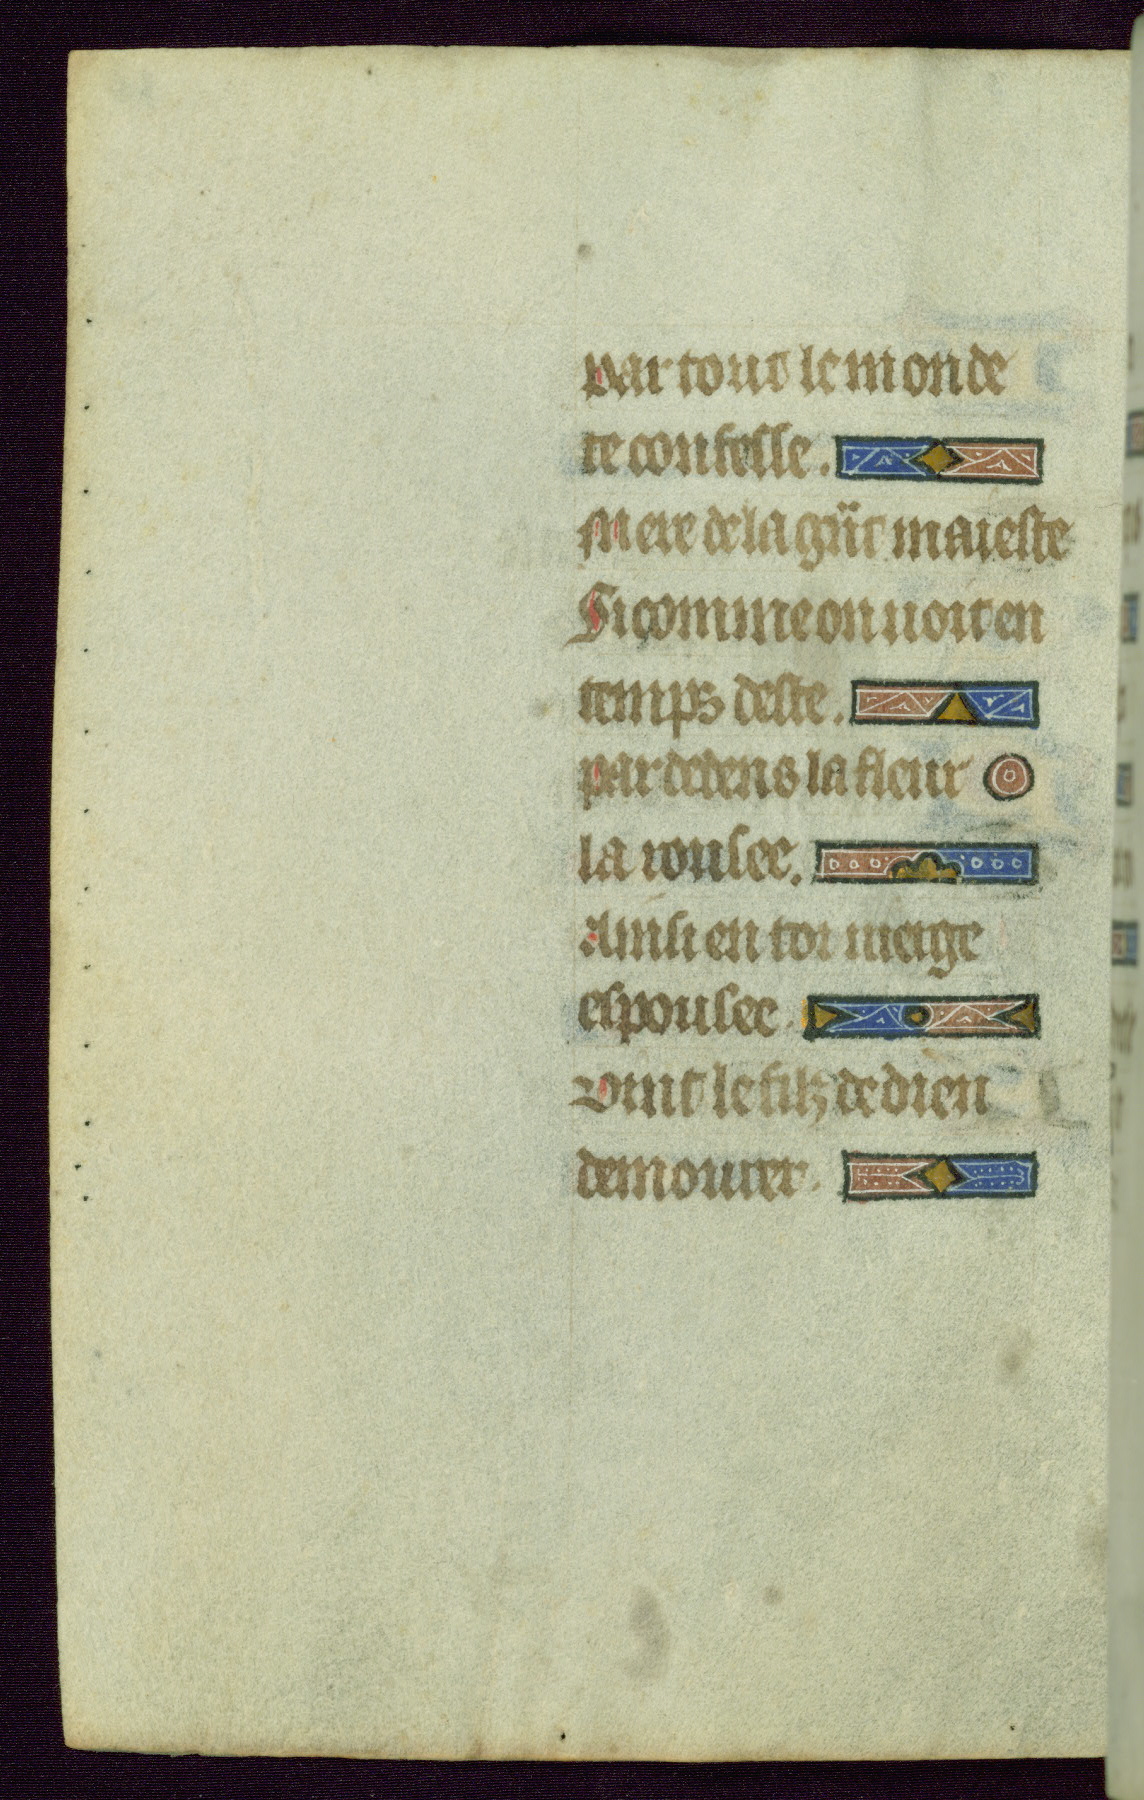 Par tout le monde
te confesse.
Mere de la grãt maieste
Si comme on uoit en
temps deste.
Par dedens la fleur
la rousee.
Ainsi en toi uierge
espousee.
Uint le filz de dieu
demourer.